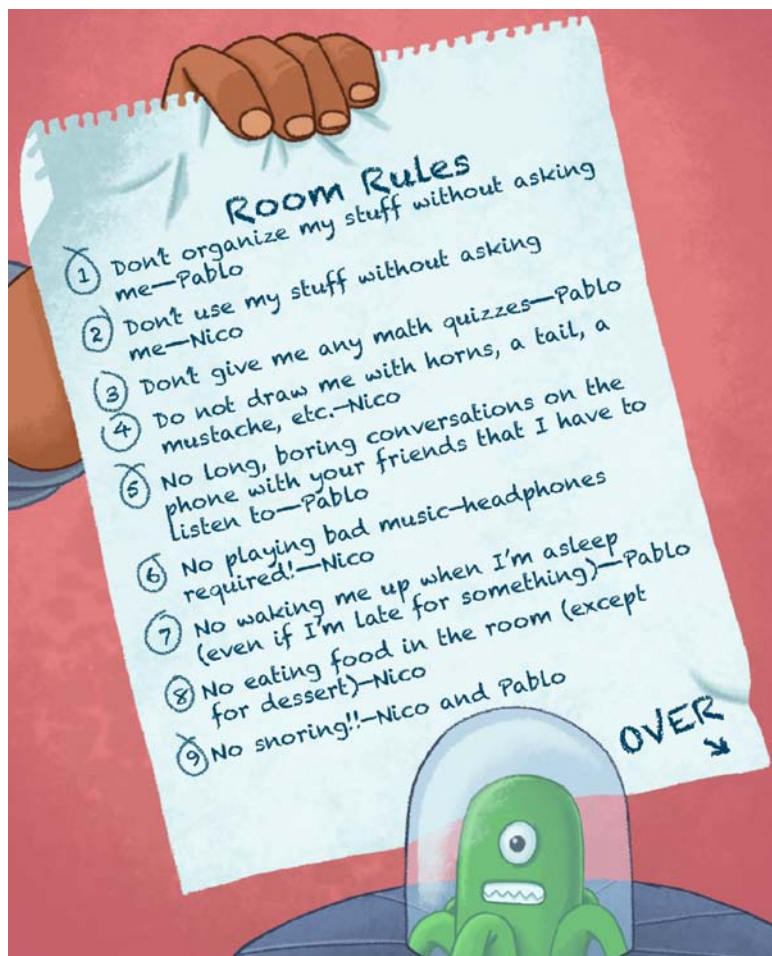 Room Rules
1 Don't organize my stuff without asking
me—Pablo
2 Don't use my stuff without asking
me—Nico
3 Don't give me any math quizzes—Pablo
4 Do not draw me with horns, a tail, a
mustache, etc.—Nico
5 No long, boring conversations on the
phone with your friends that I have to
listen to—Pablo
6 No playing bad music—headphones
required!—Nico
7 No waking me up when I'm asleep
(even if I'm late for something)—Pablo
8 No eating food in the room (except
for dessert)—Nico
9 No snoring!!—Nico and Pablo
OVER